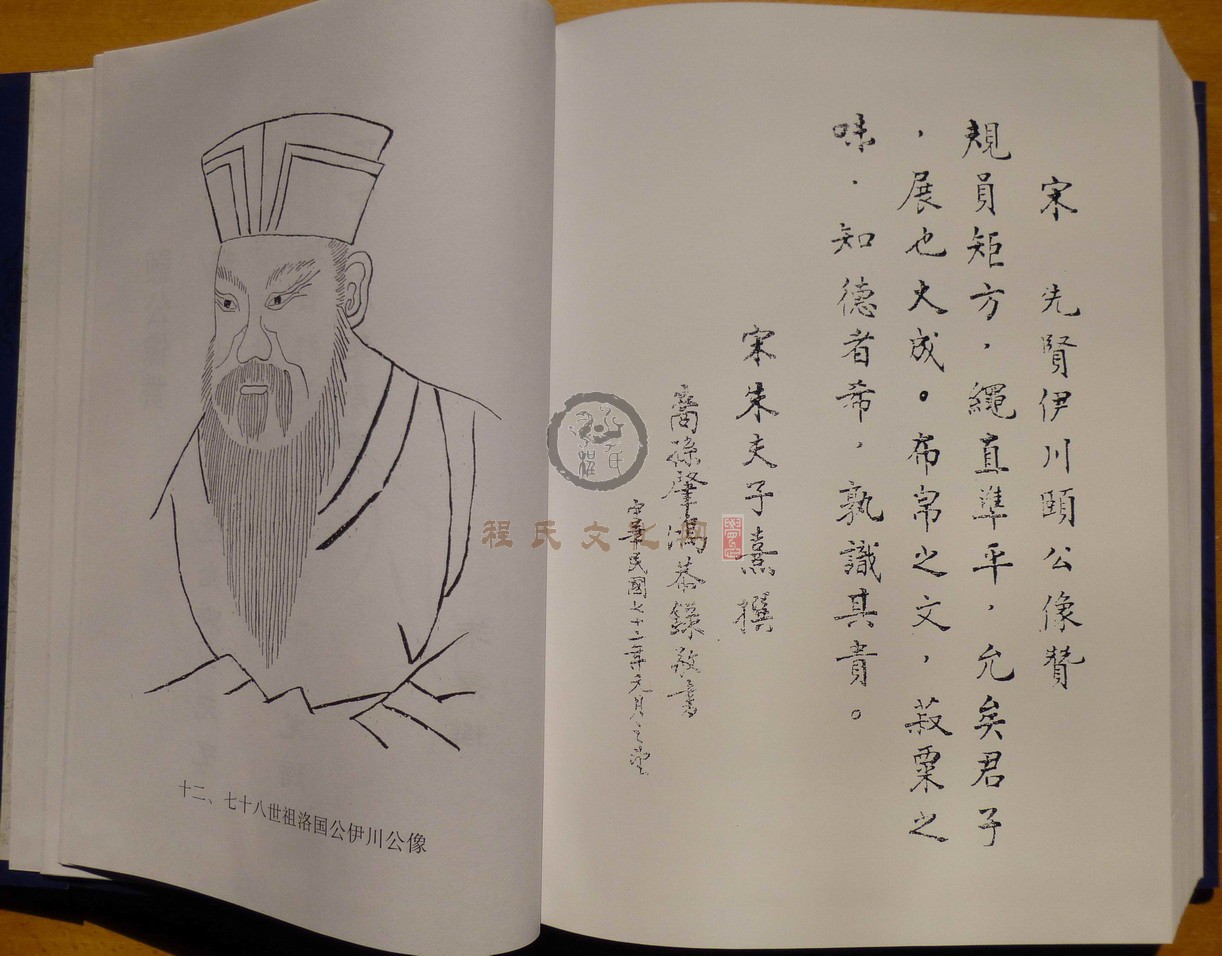 十二、七十八世祖洛国公伊川公像
宋 先賢伊川頤公像贊
規員矩方，繩直準平，允矣君子
，展也大成。布帛之文，菽粟之
味．知德者希，孰識其貴。
宋朱夫子熹撰
裔孫肇鴻恭錄敬書
中華民國七十二年元月
程氏文化网